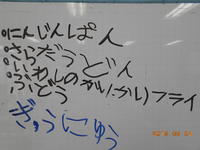 にんじんぱん
さらだうどん
ふわしのかりかりフライ
ぶどう
ぎゅうにゅう